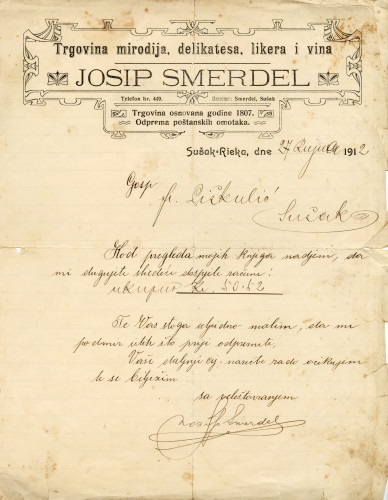 Trgovina mirodija, delikatesa, likera i vina
JOSIP SMERDEL
Telefon br. 449. Brzojav: Smerdel, Sušak
Trgovina osnovana godine 1807.
Odprema poštanskih omotaka.
Sušak-Rieka, dne 27 Rujna 1912
Gosp
fr. Pičkulić
Sušak
Kod pregleda mojih knjiga nadjem, da
mi dugujete sledeće dospjele račune:
ukupno Kr. 50.52
Te Vas stoga uljudno molim, da mi
podmir uth isto prije odpremite.
Vaše daljnje cj. naručbe rado očekujem
te se bilježim
sa poštovanjem
Josip Smerdel